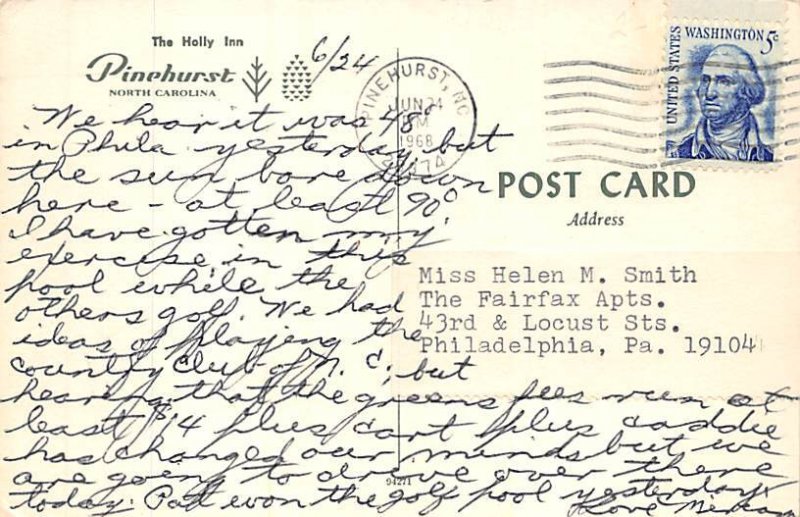 The Holly Inn
Pinehurst
NORTH CAROLINA
6/24
PINEHURST, NC
JUN 24
PM
1968
28374
UNITED STATES
WASHINGTON 5c
We hear it was 48°
in Phila. yesterday but
the sun bore down
here - at least 90°.
I have gotten my
exercise in this
pool while the
others golf. We had
ideas of playing the
country club of N. C., but
hearing that the greens fees run at
least $14 plus cart plus caddie
has changed our minds but we
are going to drive over there
today. Pat won the golf pool yesterday.
Love
POST CARD
Address
Miss Helen M. Smith
The Fairfax Apts.
43rd & Locust Sts.
Philadelphia, Pa. 19104
94271